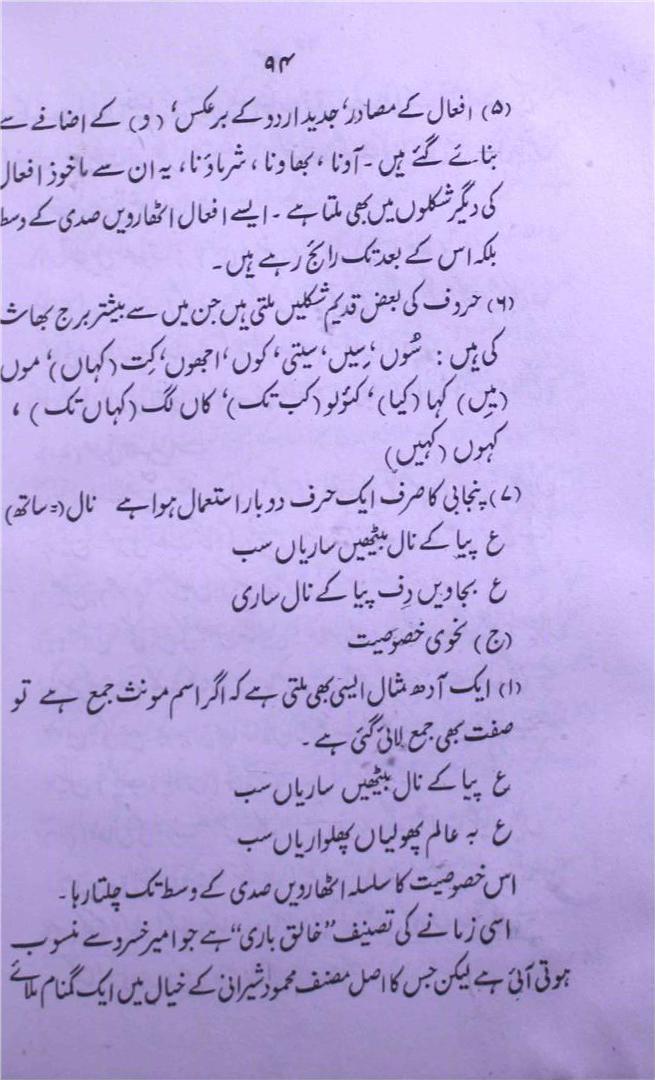 ۹۴
(۵) افعال کے مصادر، جدید اردو کے برعکس، (و) کے اضافے سے
بنائے گئے ہیں۔ آونا، بھاونا، شرماؤنا، یہ ان سے ماخوذ افعال
کی دیگر شکلوں میں بھی ملتا ہے۔ ایسے افعال اٹھارویں صدی کے وسط
بلکہ اس کے بعد تک رائج رہے ہیں۔
(۶) حروف کی بعض قدیم شکلیں ملتی ہیں جن میں سے بیشتر برج بھاشا
کی ہیں: سُوں، سِیں، سیتی، کوں، اجھوں، کِت (کہاں)، موں
(میں) کہا (کیا)، کئولو (کب تک)، کاں لگ (کہاں تک)،
کہوں (کہیں)
(۷) پنجابی کا صرف ایک حرف دوبار استعمال ہوا ہے نال (= ساتھ)
ع پیا کے نال بیٹھیں ساریاں سب
ع بجاویں دِف پیا کے نال ساری
(ج) نحوی خصوصیت
(۱) ایک آدھ مثال ایسی بھی ملتی ہے کہ اگر اسم مونث جمع ہے تو
صفت بھی جمع لائی گئی ہے۔
ع پیا کے نال بیٹھیں ساریاں سب
ع بہ عالم پھولیاں پھلواریاں سب
اس خصوصیت کا سلسلہ اٹھارویں صدی کے وسط تک چلتا رہا۔
اسی زمانے کی تصنیف "خالق باری" ہے جو امیر خسرو سے منسوب
ہوتی آئی ہے لیکن جس کا اصل مصنف محمود شیرانی کے خیال میں ایک گمنام ملائے